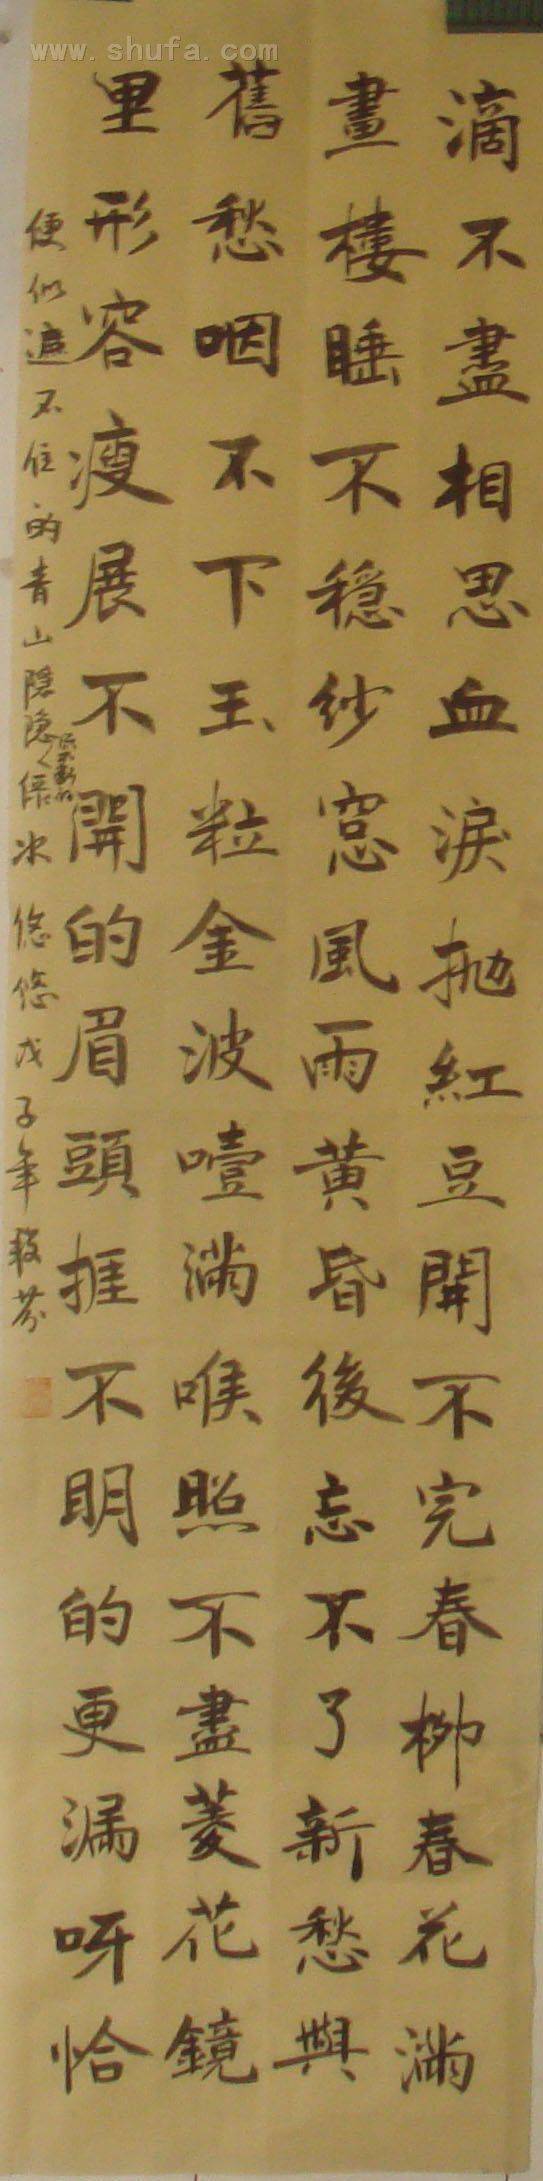 www.shufa.com
滴不盡相思血淚抛紅豆開不完春柳春花滿
畫樓睡不穩紗窓風雨黄昏後忘不了新愁與
舊愁咽不下玉粒金波噎滿喉照不盡菱花鏡
里形容瘦展不開的眉頭捱不明的更漏呀恰
便似遮不住的青山隱隱流不斷的水悠悠戊子年 芬